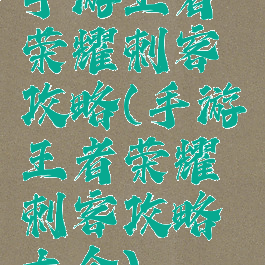 手游王者
荣耀刺客
攻略(手游
王者荣耀
刺客攻略
大全)